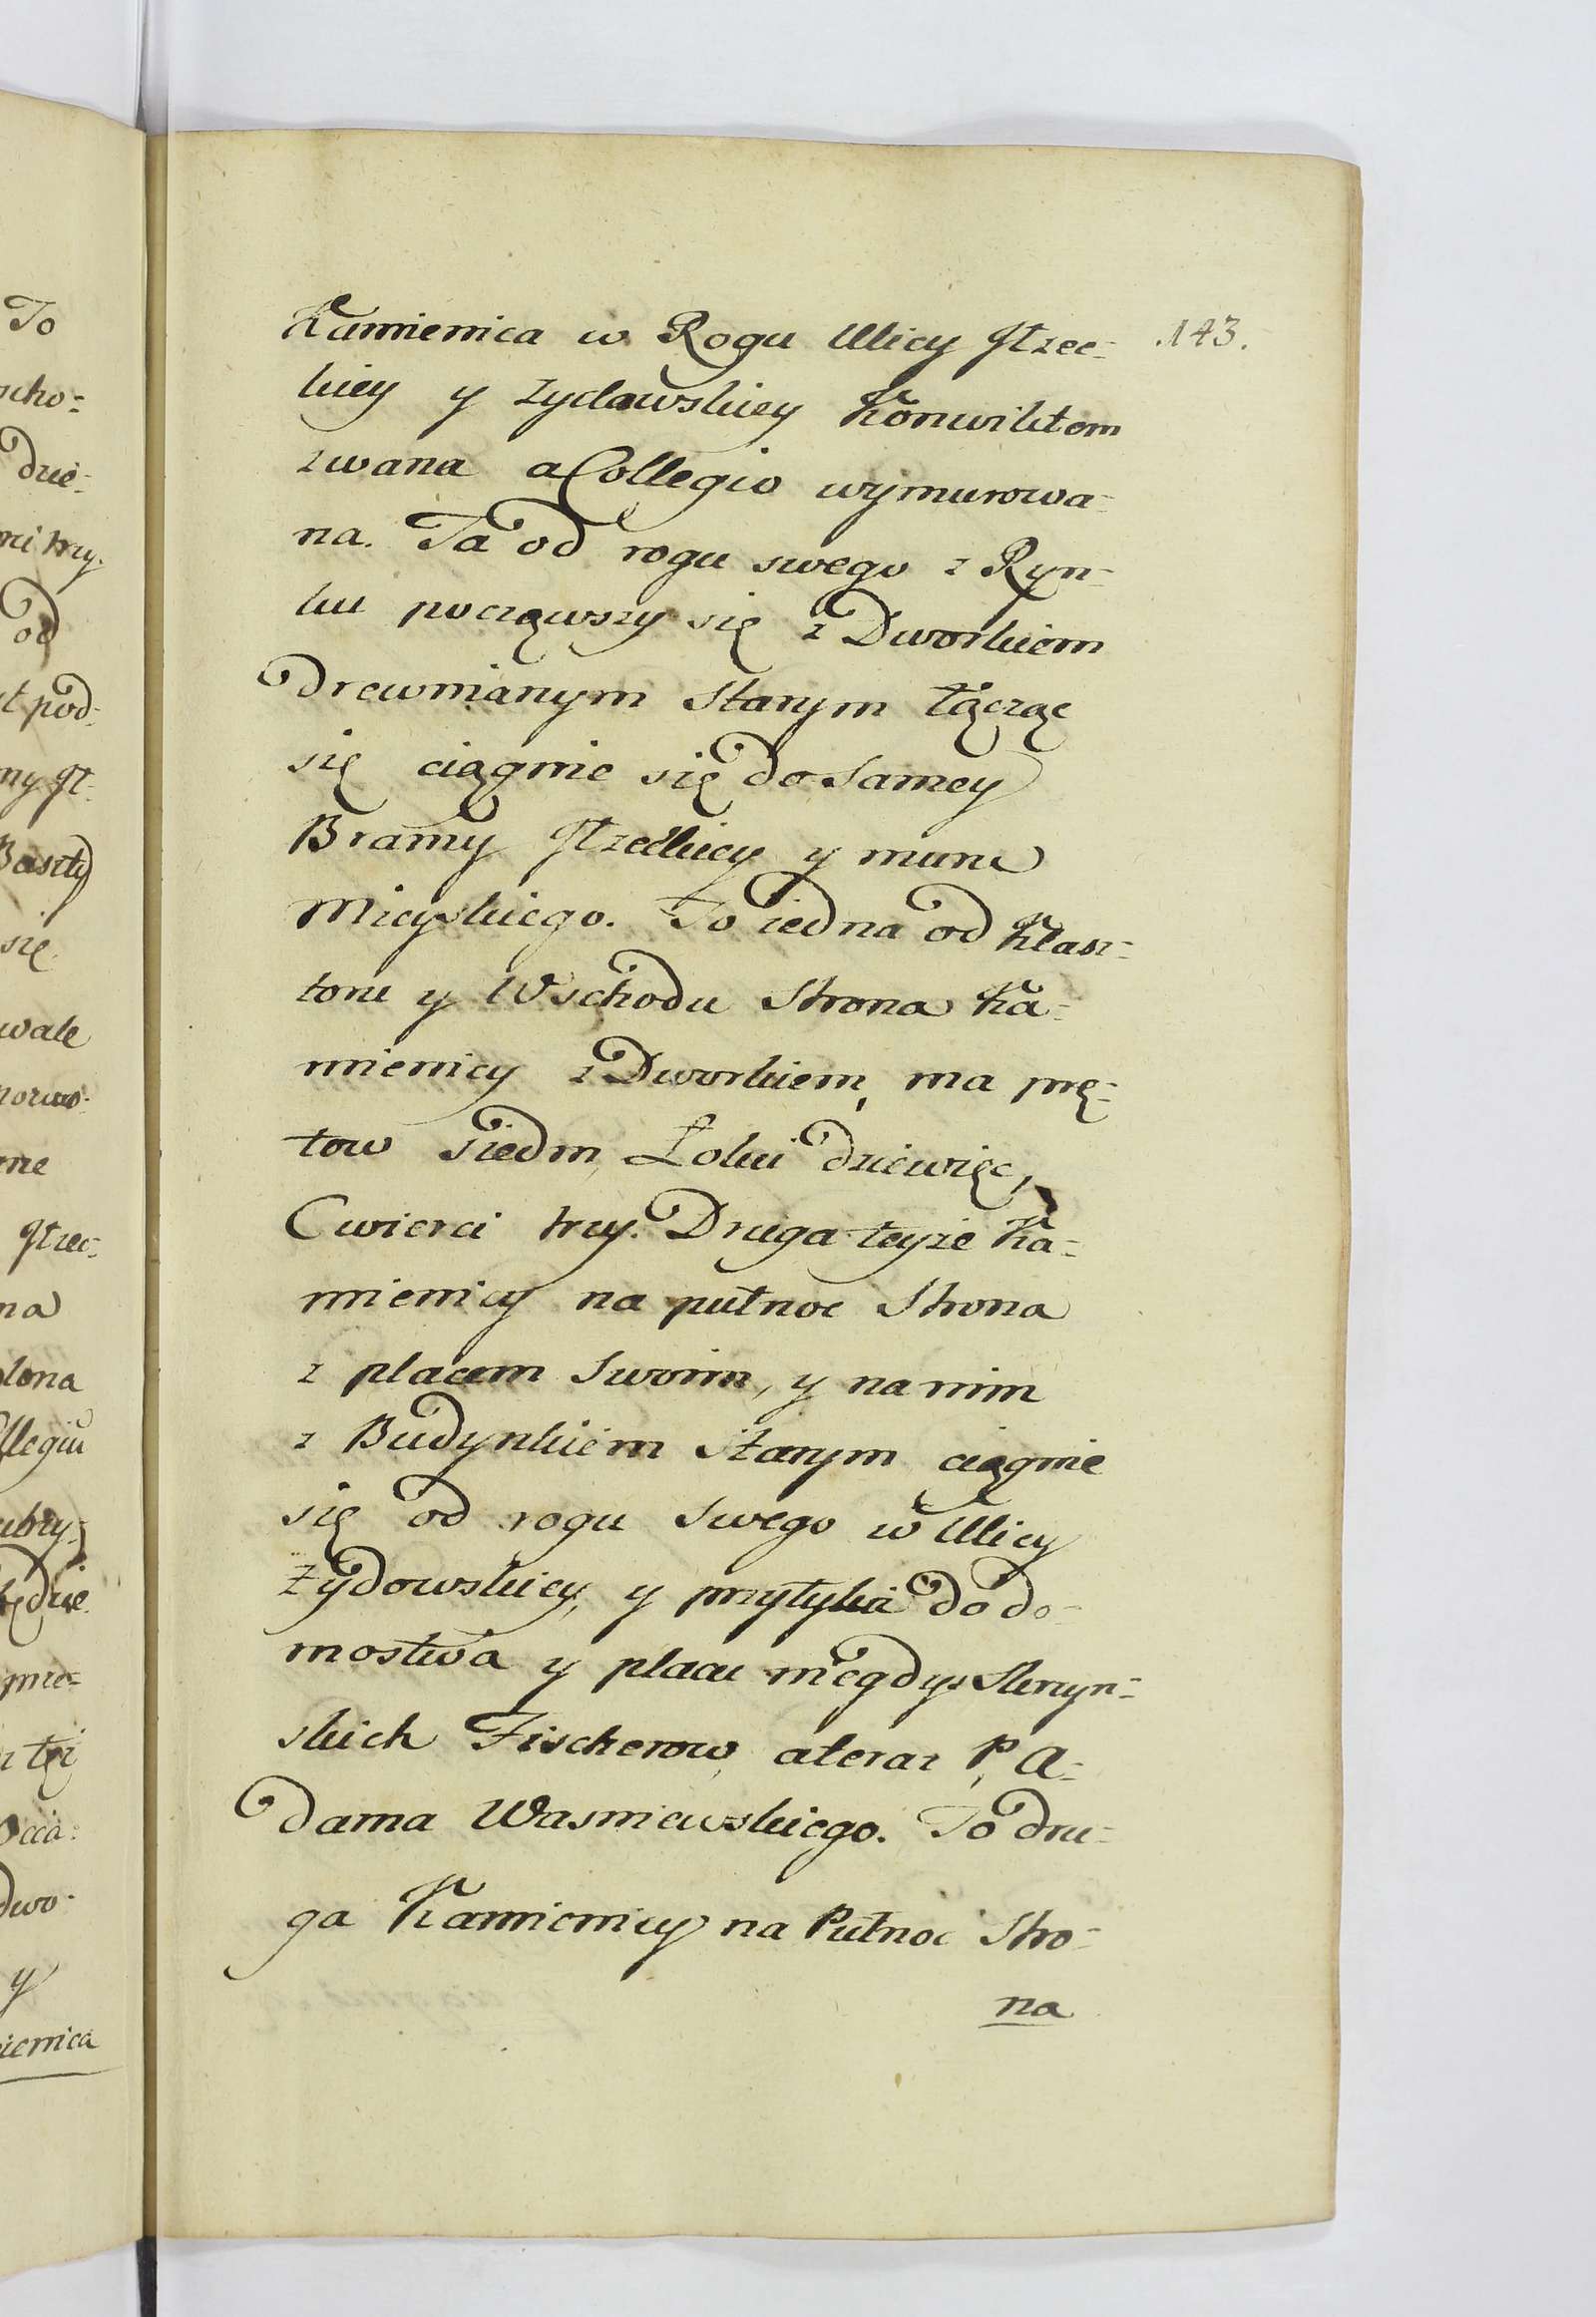 To
scho-
dzie-
mi trzy.
od
pod-
ny St-
Baszty
się
wale
ne
Strzec-
na
lona
llegiu
dzie
y
ienica
Kamienica w Rogu Ulicy Grzec- 143.
kiey y Zydawskiey Konwiktem
zwana a Collegio wymurowa-
na. Ta od rogu swego z Ryn-
ku począwszy się z Dworkiem
Drewnianym starym łącząc
się ciągnie się do samey
Bramy Grzeckiey y muru
Mieyskiego. To iedna od Klasz-
toru y Wschodu Strona Ka-
mienicy z Dworkiem, ma prę-
tow siedm, Łokci dziewięc,
Cwierci trzy. Druga teyze Ka-
mienicy na pułnoc Strona
z placem Swoim, y na nim
z Budynkiem starym ciągnie
się od rogu swego w Ulicy
Zydowskiey, y przytyka do do-
mostwa y placu niegdys
skich Fischerow, a teraz P. A-
dama Wasniewskiego. To dru-
ga Kamienicy na Pułnoc Stro-
na